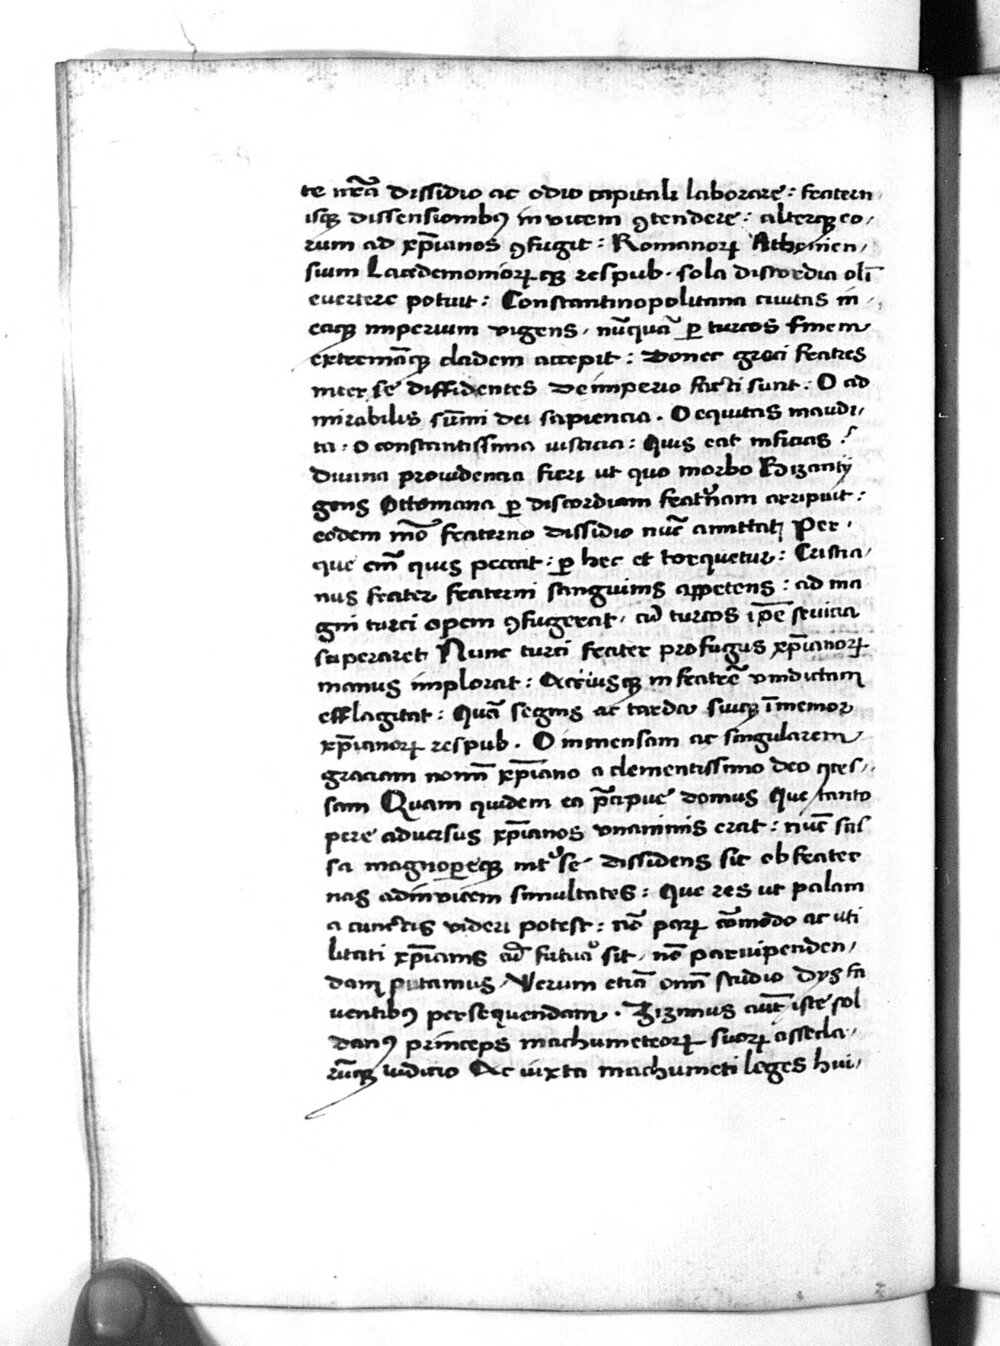 te nr̄a dissidio ac odio capitali laborare : fratern
isqꝫ dissensionibꝰ in vicem ꝯtendere : alterqꝫ eo /
rum ad xp̄ianos ꝯfugit : Romanoꝝ Athenien /
sium Lacedemonioꝝqꝫ respub . sola discordia oli̅
euertere potuit : Constantinopolitana ciuitas in /
eaqꝫ imperium vigens / nūquā ꝑ turcos finem
extremāqꝫ cladem accepit : donec greci fratres
inter se diffidentes de imperio facti sunt : O ad
mirabilis sūmi dei sapiencia . O equitas inaudi /
ta . o constantissima iusticia : Quis eat inficias !
Diuina prouidencia fieri ut quo morbo Bizantij
gens Ottomana ꝑ discordiam frat'nam arripuit :
eodem mō fraterno dissidio nūc amittat Per .
que em̄ quis peccat : ꝑ hec et torquetur : Cristia /
nus frater fraterni sanguinis appetens : ad ma
gni turci opem ꝯfugerat / cū turcos ip̄e seuicia
superaret Nunc turci frater profugus xp̄ianoꝝ
manus implorat : Acriusqꝫ in fratrē vindictam
efflagitat : Quā segnis ac tarda suiqꝫ īmemor
xp̄ianoꝝ respub . O inmensam ac singularem
graciam nomī xp̄iano a clementissimo deo ꝯces /
sam Quam quidem ea p̄cipue domus Que tanto
pere aduersus xp̄ianos vnanimis erat : nūc scis
sa magnopereqꝫ int' se dissidens sit ob frater
nas adinvicem simultates : Que res ut palam
a cunctis videri potest : nō paꝝ cōmodo ac uti
litati xp̄ianis cū futura sit / nō paruipenden /
dam putamus / Verum etiā om̄i studio Dys fa
uentibꝰ persequendam . Zizimus aut̄ iste sol
danꝰ princeps machumeteoꝝ suoꝝ assecla /
rūqꝫ iudicio Ac iuxta machumeti leges hui /